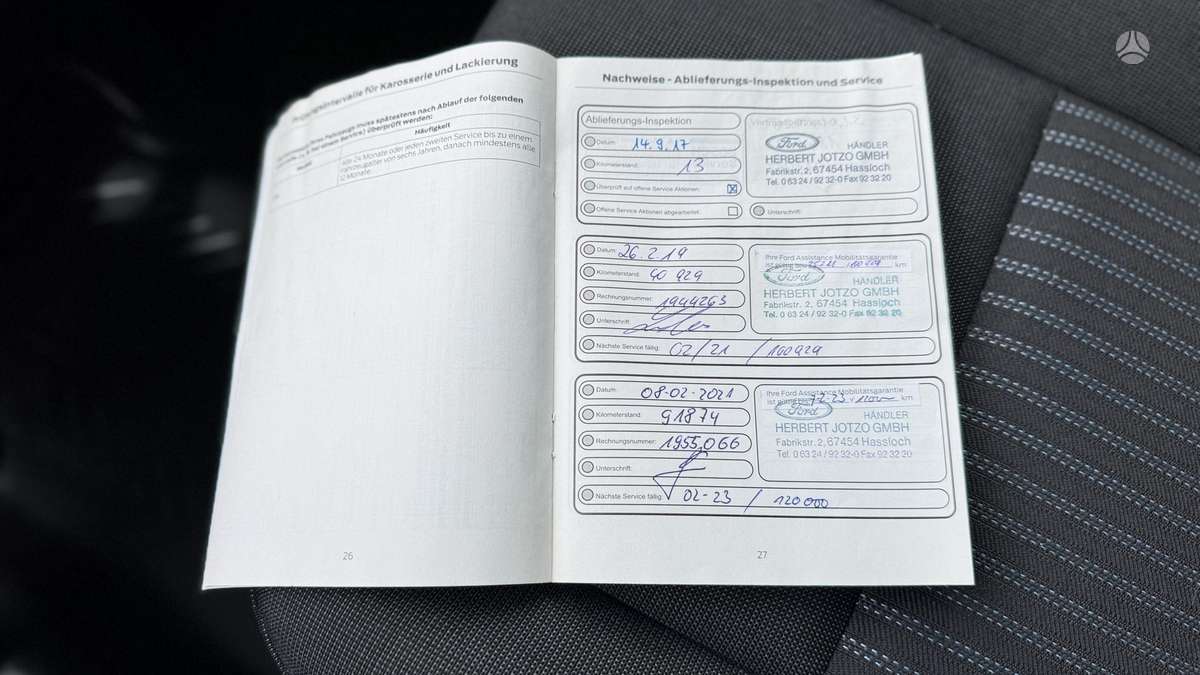 Prüfungsintervalle für Karosserie und Lackierung
spätestens nach Ablauf der folgenden
überprüft werden:
Häufigkeit
Alle 24 Monate oder jeden zweiten Service bis zu einem
Fahrzeugalter von sechs Jahren, danach mindestens alle
12 Monate.
26
Nachweise - Ablieferungs-Inspektion und Service
Ablieferungs-Inspektion
Datum: 14.9.17
Kilometerstand: 13
Überprüft auf offene Service Aktionen:
Offene Service Aktionen abgearbeitet:
Ford HÄNDLER
HERBERT JOTZO GMBH
Fabrikstr. 2, 67454 Hassloch
Tel. 0 63 24 / 92 32-0 Fax 92 32 20
Unterschrift:
Datum: 26.2.19
Kilometerstand:
Rechnungsnummer: 1944263
Unterschrift:
Ihre Ford Assistance Mobilitätsgarantie
ist gültig bis km
Ford HÄNDLER
HERBERT JOTZO GMBH
Fabrikstr. 2, 67454 Hassloch
Tel. 0 63 24 / 92 32-0 Fax 92 32 20
Nächste Service fällig: 02/21 / 100929
Datum: 08-02-2021
Kilometerstand: 91874
Rechnungsnummer: 1955066
Unterschrift:
Ihre Ford Assistance Mobilitätsgarantie
ist gültig bis km
Ford HÄNDLER
HERBERT JOTZO GMBH
Fabrikstr. 2, 67454 Hassloch
Tel. 0 63 24 / 92 32-0 Fax 92 32 20
Nächste Service fällig: 02-23 / 120000
27